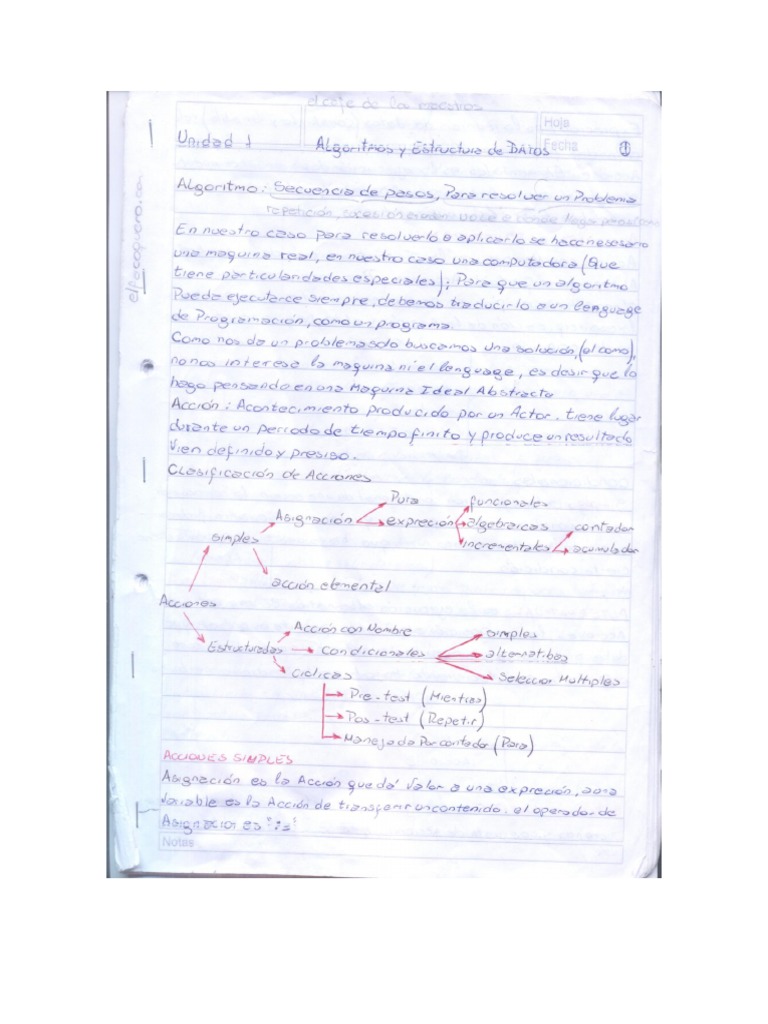 el coje de la
Hoja
Unidad 1 Algoritmos y Estructura de DATOS Fecha 1
Algoritmo: Secuencia de pasos, Para resolver un Problema
repetición,
En nuestro caso para resolverlo o aplicarlo se hace nesesario
una maquina real, en nuestro caso una computadora (Que
tiene particularidades especiales); Para que un algoritmo
Pueda ejecutarce siempre, debemos traducirlo a un lenguage
de Programación, como un programa.
Como nos da un problema solo buscamos una solución, (el como),
no nos interesa la maquina ni el lenguage, es desir que lo
hago pensando en una Maquina Ideal Abstracta
Acción: Acontecimiento producido por un Actor. tiene lugar
durante un periodo de tiempo finito y produce un resultado
vien definido y presiso.
Clasificación de Acciones
Pura funcionales
Asignación expreción algebraicas contador
simples incrementales acumulador
acción elemental
Acciones
Acción con Nombre simples
Estructuradas condicionales alternatibas
Ciclicas Seleccion Multiples
Pre-test (Mientras)
Pos-test (Repetir)
Manejada Por contador (Para)
ACCIONES SIMPLES
Asignación es la Acción que dá valor a una expreción, a una
variable es la Acción de transferir un contenido. el operador de
Asignacion es ":="
Notas